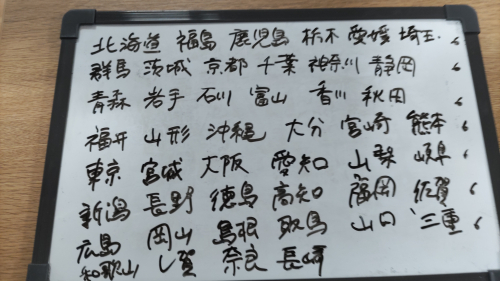 北海道 福島 鹿児島 栃木 愛媛 埼玉 6
群馬 茨城 京都 千葉 神奈川 静岡 6
青森 岩手 石川 富山 香川 秋田 6
福井 山形 沖縄 大分 宮崎 熊本 6
東京 宮城 大阪 愛知 山梨 岐阜 6
新潟 長野 徳島 高知 福岡 佐賀 6
広島 岡山 島根 取鳥 山口 三重 6
和歌山 し賀 奈良 長崎